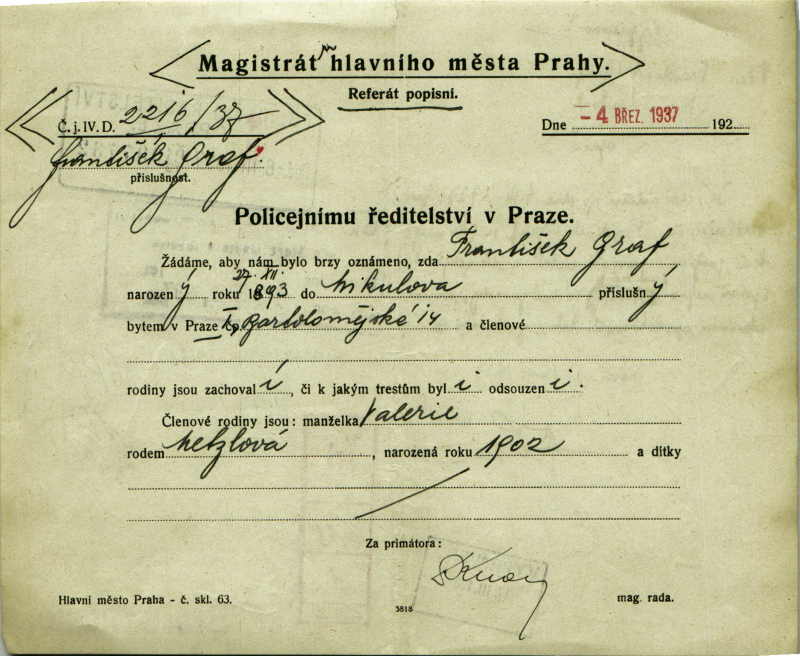 Magistrát hlavního města Prahy.
Referát popisní.
Č. j. IV. D. 2216/37
Dne - 4 BŘEZ. 1937 192
František Graf.
příslušnost.
Policejnímu ředitelství v Praze.
Žádáme, aby nám bylo brzy oznámeno, zda František Graf
27. XII.
narozen ý roku 1893 do Mikulova příslušn ý
bytem v Praze I., čp. Bartolomějské 14 a členové
rodiny jsou zachoval í, či k jakým trestům byl i odsouzen i.
Členové rodiny jsou: manželka Valerie
rodem Metzlová, narozená roku 1902 a dítky
Za primátora:
Hlavní město Praha - č. skl. 63. mag. rada.
3818